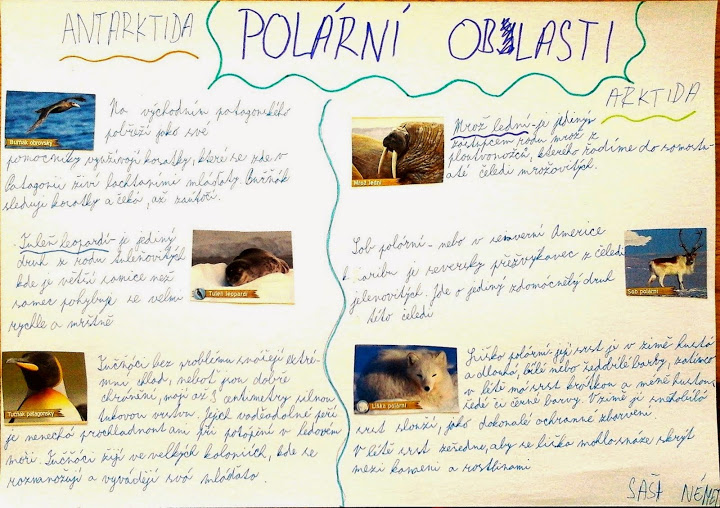 ANTARKTIDA
POLÁRNÍ OBLASTI
ARKTIDA
Buřňák obrovský
Na východním patagonského
pobřeží jako své
pomocníky využívají kosatky, které se zde v
Patagonii živí lachtaními mláďaty. Buřňák
sleduje kosatky a čeká, až zaútočí.
Tuleň leopardí - je jediný
druh z rodu tuleňovitých
kde je větší samice než
samec pohybuje se velmi
rychle a mrštně
Tuleň leopardí
Tučňák patagonský
Tučňáci bez problému snášejí extré-
mní chlad, neboť jsou dobře
chráněni, mají až 5 centimetry silnou
tukovou vrstvu. Jejich voděodolné peří
je nenechá prochladnout ani při potápění v ledovém
moři. Tučňáci žijí ve velkých koloniích, kde se
rozmnožují a vyvádějí svá mláďata
Mrož lední
Mrož lední - je jediným
zástupcem rodu mrož z
ploutvonožců, kterého řadíme do samosta-
até čeledi mrožovitých.
Sob polární - nebo v severní Americe
karibu je severský přežvýkavec z čeledi
jelenovitých. Jde o jediný zdomácnělý druh
této čeledi
Sob polární
Liška polární
Liška polární - její srst je v zimě hustá
a dlouhá, bílé nebo šedobílé barvy, zatímco
v létě má srst krátkou a méně hustou
šedé či černé barvy. V zimě jí sněhobílá
srst slouží, jako dokonalé ochranné zbarvení.
v létě srst zešedne, aby se liška mohla snáze skrýt
mezi kameni a rostlinami
SAŠA NĚMEC